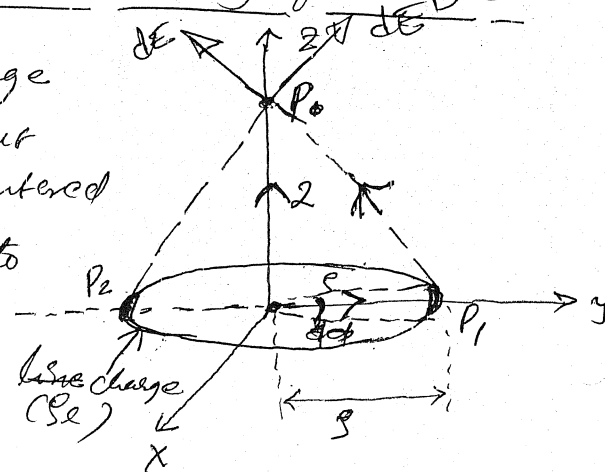 dE
z
dE
ge
P₀
tered
z
to
P2
ρ
dϕ
P1
y
line charge
(ρl)
ρ
X